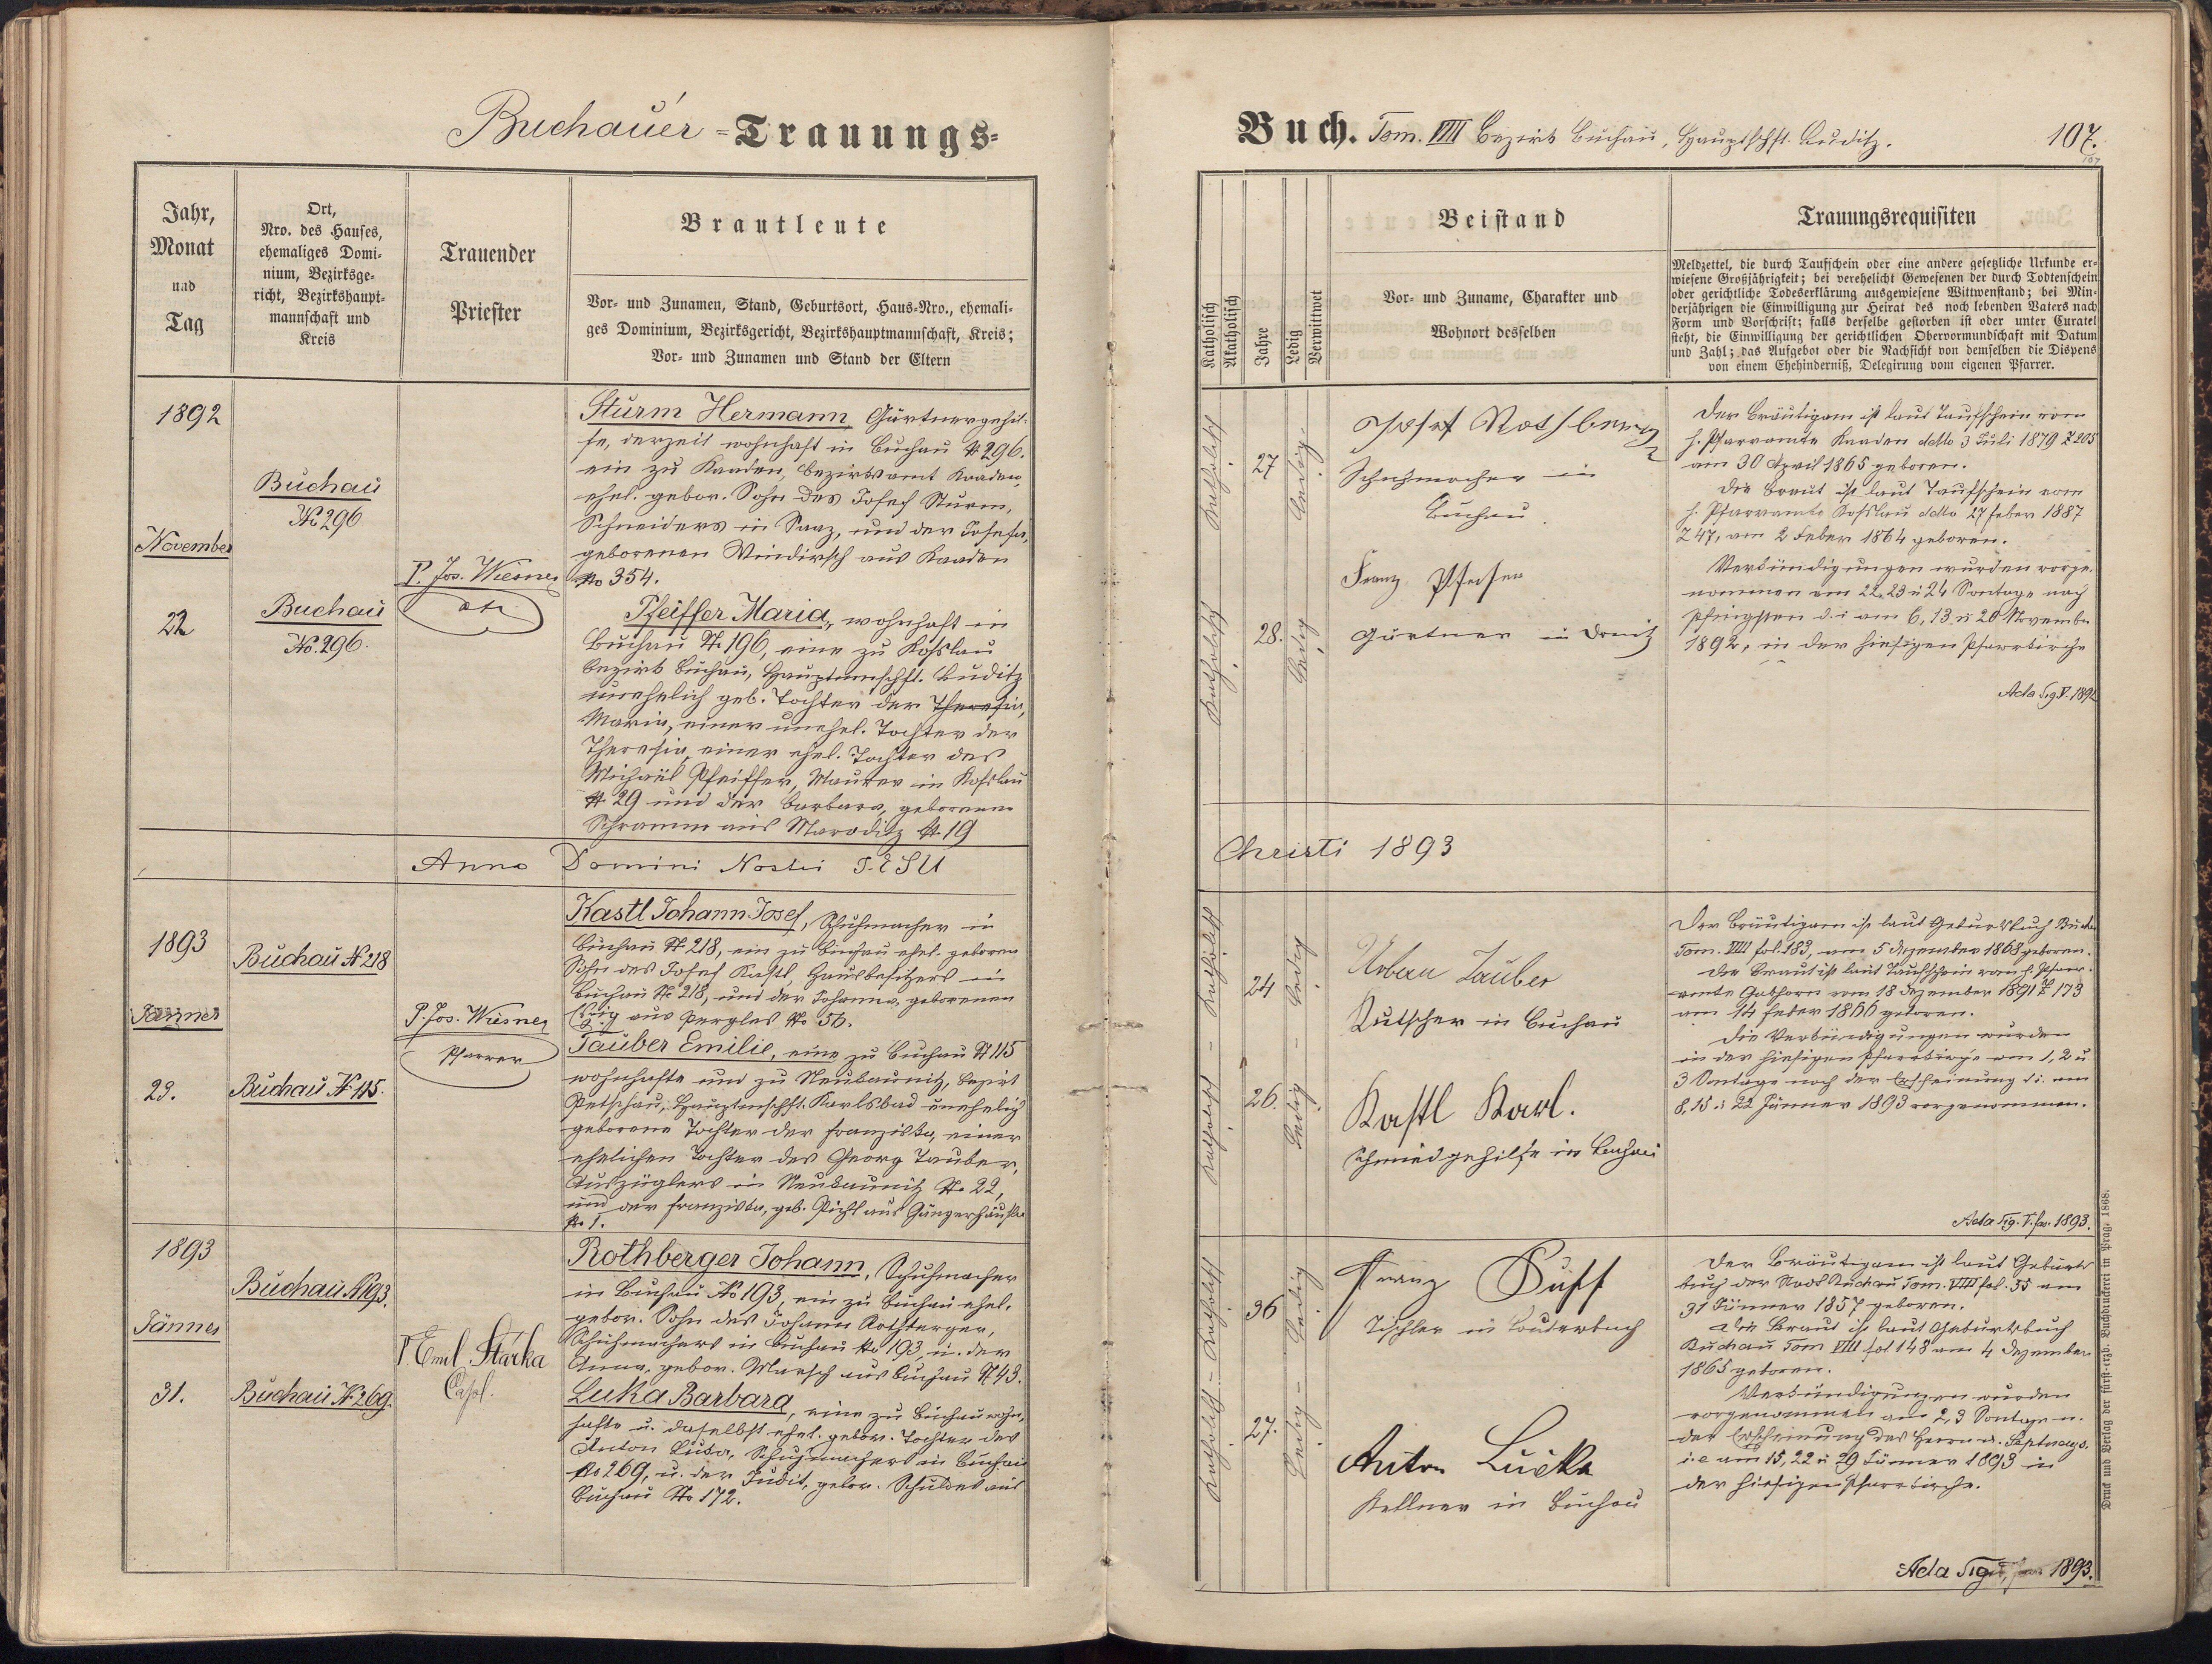 Buchauer - Trauungs-
Jahr,
Monat
und
Tag
Ort,
Nro. des Hauses,
ehemaliges Domi-
nium, Bezirksge-
richt, Bezirkshaupt-
mannschaft und
Kreis
Trauender
Priester
Brautleute
Vor- und Zunamen, Stand, Geburtsort, Haus-Nro., ehemali-
ges Dominium, Bezirksgericht, Bezirkshauptmannschaft, Kreis;
Vor- und Zunamen und Stand der Eltern
1892
November
22
Buchau
No 296
Buchau
No. 296.
P. Jos. Wiesner
Sturm Hermann Gärtnergehil-
fe, derzeit wohnhaft in Buchau No 296.
ein zu Kaaden, Bezirksamt Kaaden,
ehel. gebor. Sohn des Josef Sturm,
Schneiders in Saaz, und der Josefa,
geborenen Windirsch aus Kaaden
No 354.
Pfeiffer Maria, wohnhaft in
Buchau No 196, eine zu Koslau
Bezirk Buchau, Hauptmschft. Luditz
unehelich geb. Tochter der Theresia,
Maria, einer unehel. Tochter der
Theresia, einer ehel. Tochter des
Michael Pfeiffer, Maurer in Koslau
No 29 und der Barbara, geborenen
Schramm aus Maroditz No 19
Anno Domini Nostri JESU
1893
Jänner
23.
Buchau No 218
Buchau No 115.
P. Jos. Wiesner
Pfarrer
Kastl Johann Josef, Schuhmacher in
Buchau No 218, ein zu Buchau ehel. geboren
Sohn des Josef Kastl, Hausbesitzers in
Buchau No 218, und der Johanna, geborenen
aus Pergles No 56.
Tauber Emilie, eine zu Buchau No 115
wohnhafte und zu Neukaunitz, Bezirk
Petschau, Hauptmschft. Karlsbad unehelich
geborene Tochter der Franziska, einer
ehelichen Tochter des Georg Tauber,
Auszüglers in Neukaunitz No 22,
und der Franziska, geb. Pichl aus Gängerhäusln
No 1.
1893
Jänner
31.
Buchau No 193.
Buchau No 269.
P Emil Stárka
Capl.
Rothberger Johann, Schuhmacher
in Buchau No 193, ein zu Buchau ehel.
gebor. Sohn des Johann Rothberger,
Schuhmachers in Buchau No 193, u. der
Anna, gebor. Marsch aus Buchau No 43.
Luka Barbara, eine zu Buchau wohn-
hafte u. daselbst ehel. gebor. Tochter des
Anton Luka, Schuhmachers in Buchau
No 269, u. der Judit, gebor. Schuldes aus
Buchau No 172.
Buch. Tom. VIII Bezirk Buchau, Hauptschft. Luditz.
107.
107
Katholisch
Akatholisch
Jahre
Ledig
Verwittwet
Beistand
Vor- und Zuname, Charakter und
Wohnort desselben
Trauungsrequisiten
Meldzettel, die durch Taufschein oder eine andere gesetzliche Urkunde er-
wiesene Großjährigkeit; bei verehelicht Gewesenen der durch Todtenschein
oder gerichtliche Todeserklärung ausgewiesene Wittwenstand; bei Min-
derjährigen die Einwilligung zur Heirat des noch lebenden Vaters nach
Form und Vorschrift; falls derselbe gestorben ist oder unter Curatel
steht, die Einwilligung der gerichtlichen Obervormundschaft mit Datum
und Zahl; das Aufgebot oder die Nachsicht von demselben die Dispens
von einem Ehehinderniß, Delegirung vom eigenen Pfarrer.
Katholisch
27
Ledig
Katholisch
28.
Ledig
Josef Rothberger
Schuhmacher in
Buchau
Franz Pfeifer
Gärtner in Donitz
Der Bräutigam ist laut Taufschein vom
h. Pfarramte Kaaden ddto 3 Juli 1879 Z 205
am 30 April 1865 geboren.
Die Braut ist laut Taufschein vom
h. Pfarramte Koslau ddto 27 Feber 1887
Z 47, am 2 Feber 1864 geboren.
Verkündigungen wurden vorge-
nommen am 22, 23 u 24 Sontage nach
Pfingsten d. i am 6, 13 u 20 November
1892, in der hiesigen Pfarrkirche
Acta Sig V. 1892
Christi 1893
Katholisch - Katholisch
24
26.
Ledig - Ledig
Urban Tauber
Kutscher in Buchau
Kastl Karl.
Schmiedgehilfe in Buchau
Der Bräutigam ist laut Geburtsbuch Buchau
Tom. VIII fol. 183, am 5 Dezember 1868 geboren.
Die Braut ist laut Taufschein vom h. Pfarr-
amte Gabhorn vom 18 Dezember 1891 Z 173
am 14 Feber 1866 geboren.
Die Verkündigungen wurden
in der hiesigen Pfarrkirche am 1, 2 u
3 Sontage nach der Erscheinung d. i. am
8, 15 u 22 Jänner 1893 vorgenommen.
Acta Sig. V. fas. 1893.
Katholisch - Katholisch
36
27.
Ledig - Ledig
Franz Puff
Tischler in Lauterbach
Anton Lucka
Kellner in Buchau
Der Bräutigam ist laut Geburts
buch der Stadt Buchau Tom. VIII fol. 35 am
31 Jänner 1857 geboren.
Die Braut ist laut Geburtsbuch
Buchau Tom VIII fol 148 am 4 Dezember
1865 geboren.
Verkündigungen wurden
vorgenommen am 2, 3 Sontage n.
der Erscheinung des Herrn u. Septuags.
i. e am 15, 22 u 29 Jänner 1893 in
der hiesigen Pfarrkirche.
Acta Sig 1893.
Druck und Verlag der fürst-erzb. Buchdruckerei in Prag. 1868.